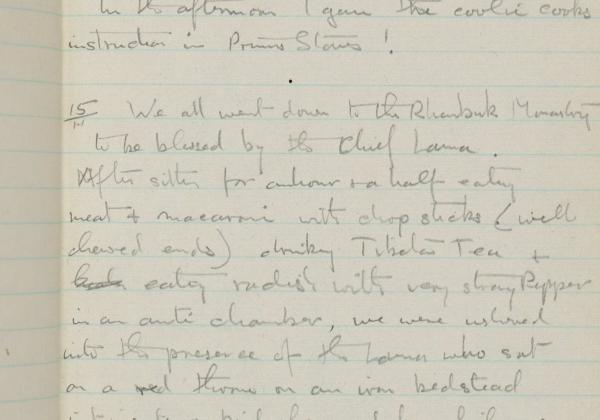 In the afternoon I gave the coolie cooks
instruction in Primus Stoves !
15 We all went down to the Rhunbuk Monastry
to be blessed by the Chief Lama .
After sitting for an hour + a half eating
meat + macaroni with chop sticks ( well
chewed ends) drinking Tibetan Tea +
eating radish with very strong Pepper
in an anti chamber, we were ushered
into the presence of the Lama who sat
on a red throne on an iron bedstead